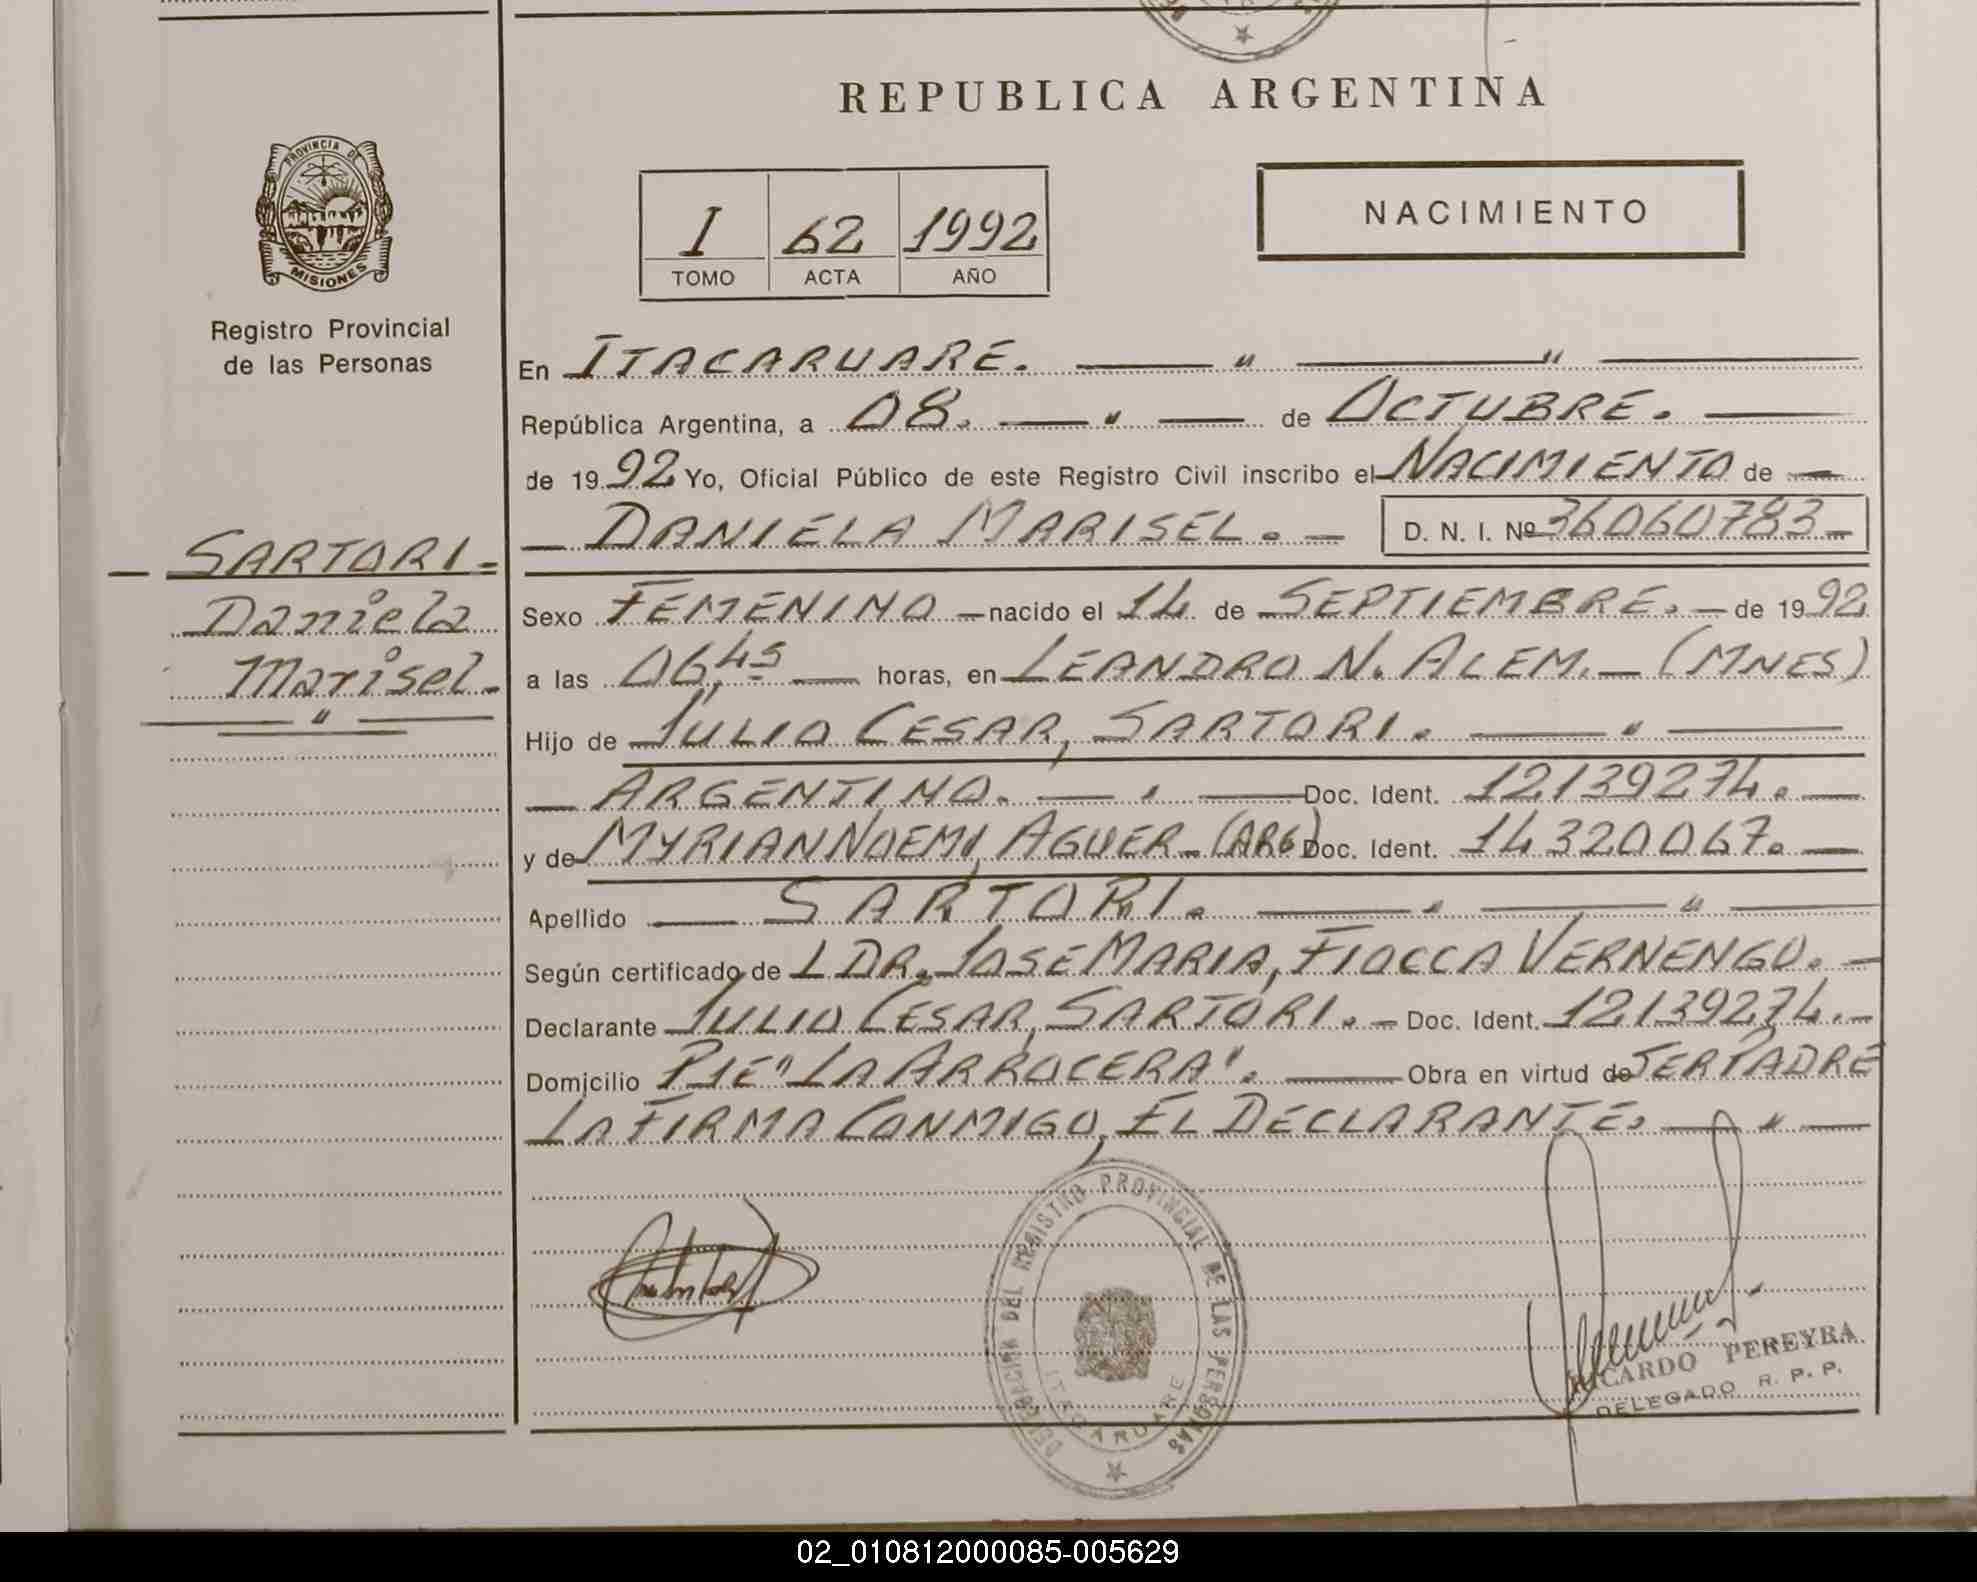 REPUBLICA ARGENTINA
PROVINCIA DE
MISIONES
Registro Provincial
de las Personas
I 62 1992
TOMO ACTA AÑO
NACIMIENTO
En ITACARUARE. — " — " —
República Argentina, a 08. — " — de OCTUBRE. —
de 1992 Yo, Oficial Público de este Registro Civil inscribo el NACIMIENTO de —
— DANIELA MARISEL. — D. N. I. Nº 36060783 —
— SARTORI =
Daniela
Marisel. —
— " —
Sexo FEMENINO — nacido el 14 de SEPTIEMBRE. — de 1992
a las 06,45 — horas, en LEANDRO N. ALEM. — (MNES)
Hijo de JULIO CESAR, SARTORI. — " —
— ARGENTINO. — " — Doc. Ident. 12139274. —
y de MYRIAN NOEMI, AGUER — (ARG) Doc. Ident. 14320067. —
Apellido — SARTORI. — " — " —
Según certificado de LDR. JOSE MARIA, FIOCCA VERNENGO. —
Declarante JULIO CESAR, SARTORI. — Doc. Ident. 12139274. —
Domicilio PJE "LA ARROCERA". — Obra en virtud de SER PADRE
LA FIRMA CONMIGO, EL DECLARANTE. — " —
DELEGACION DEL REGISTRO PROVINCIAL DE LAS PERSONAS
ITACARUARE
RICARDO PEREYRA
DELEGADO R. P. P.
02_010812000085-005629